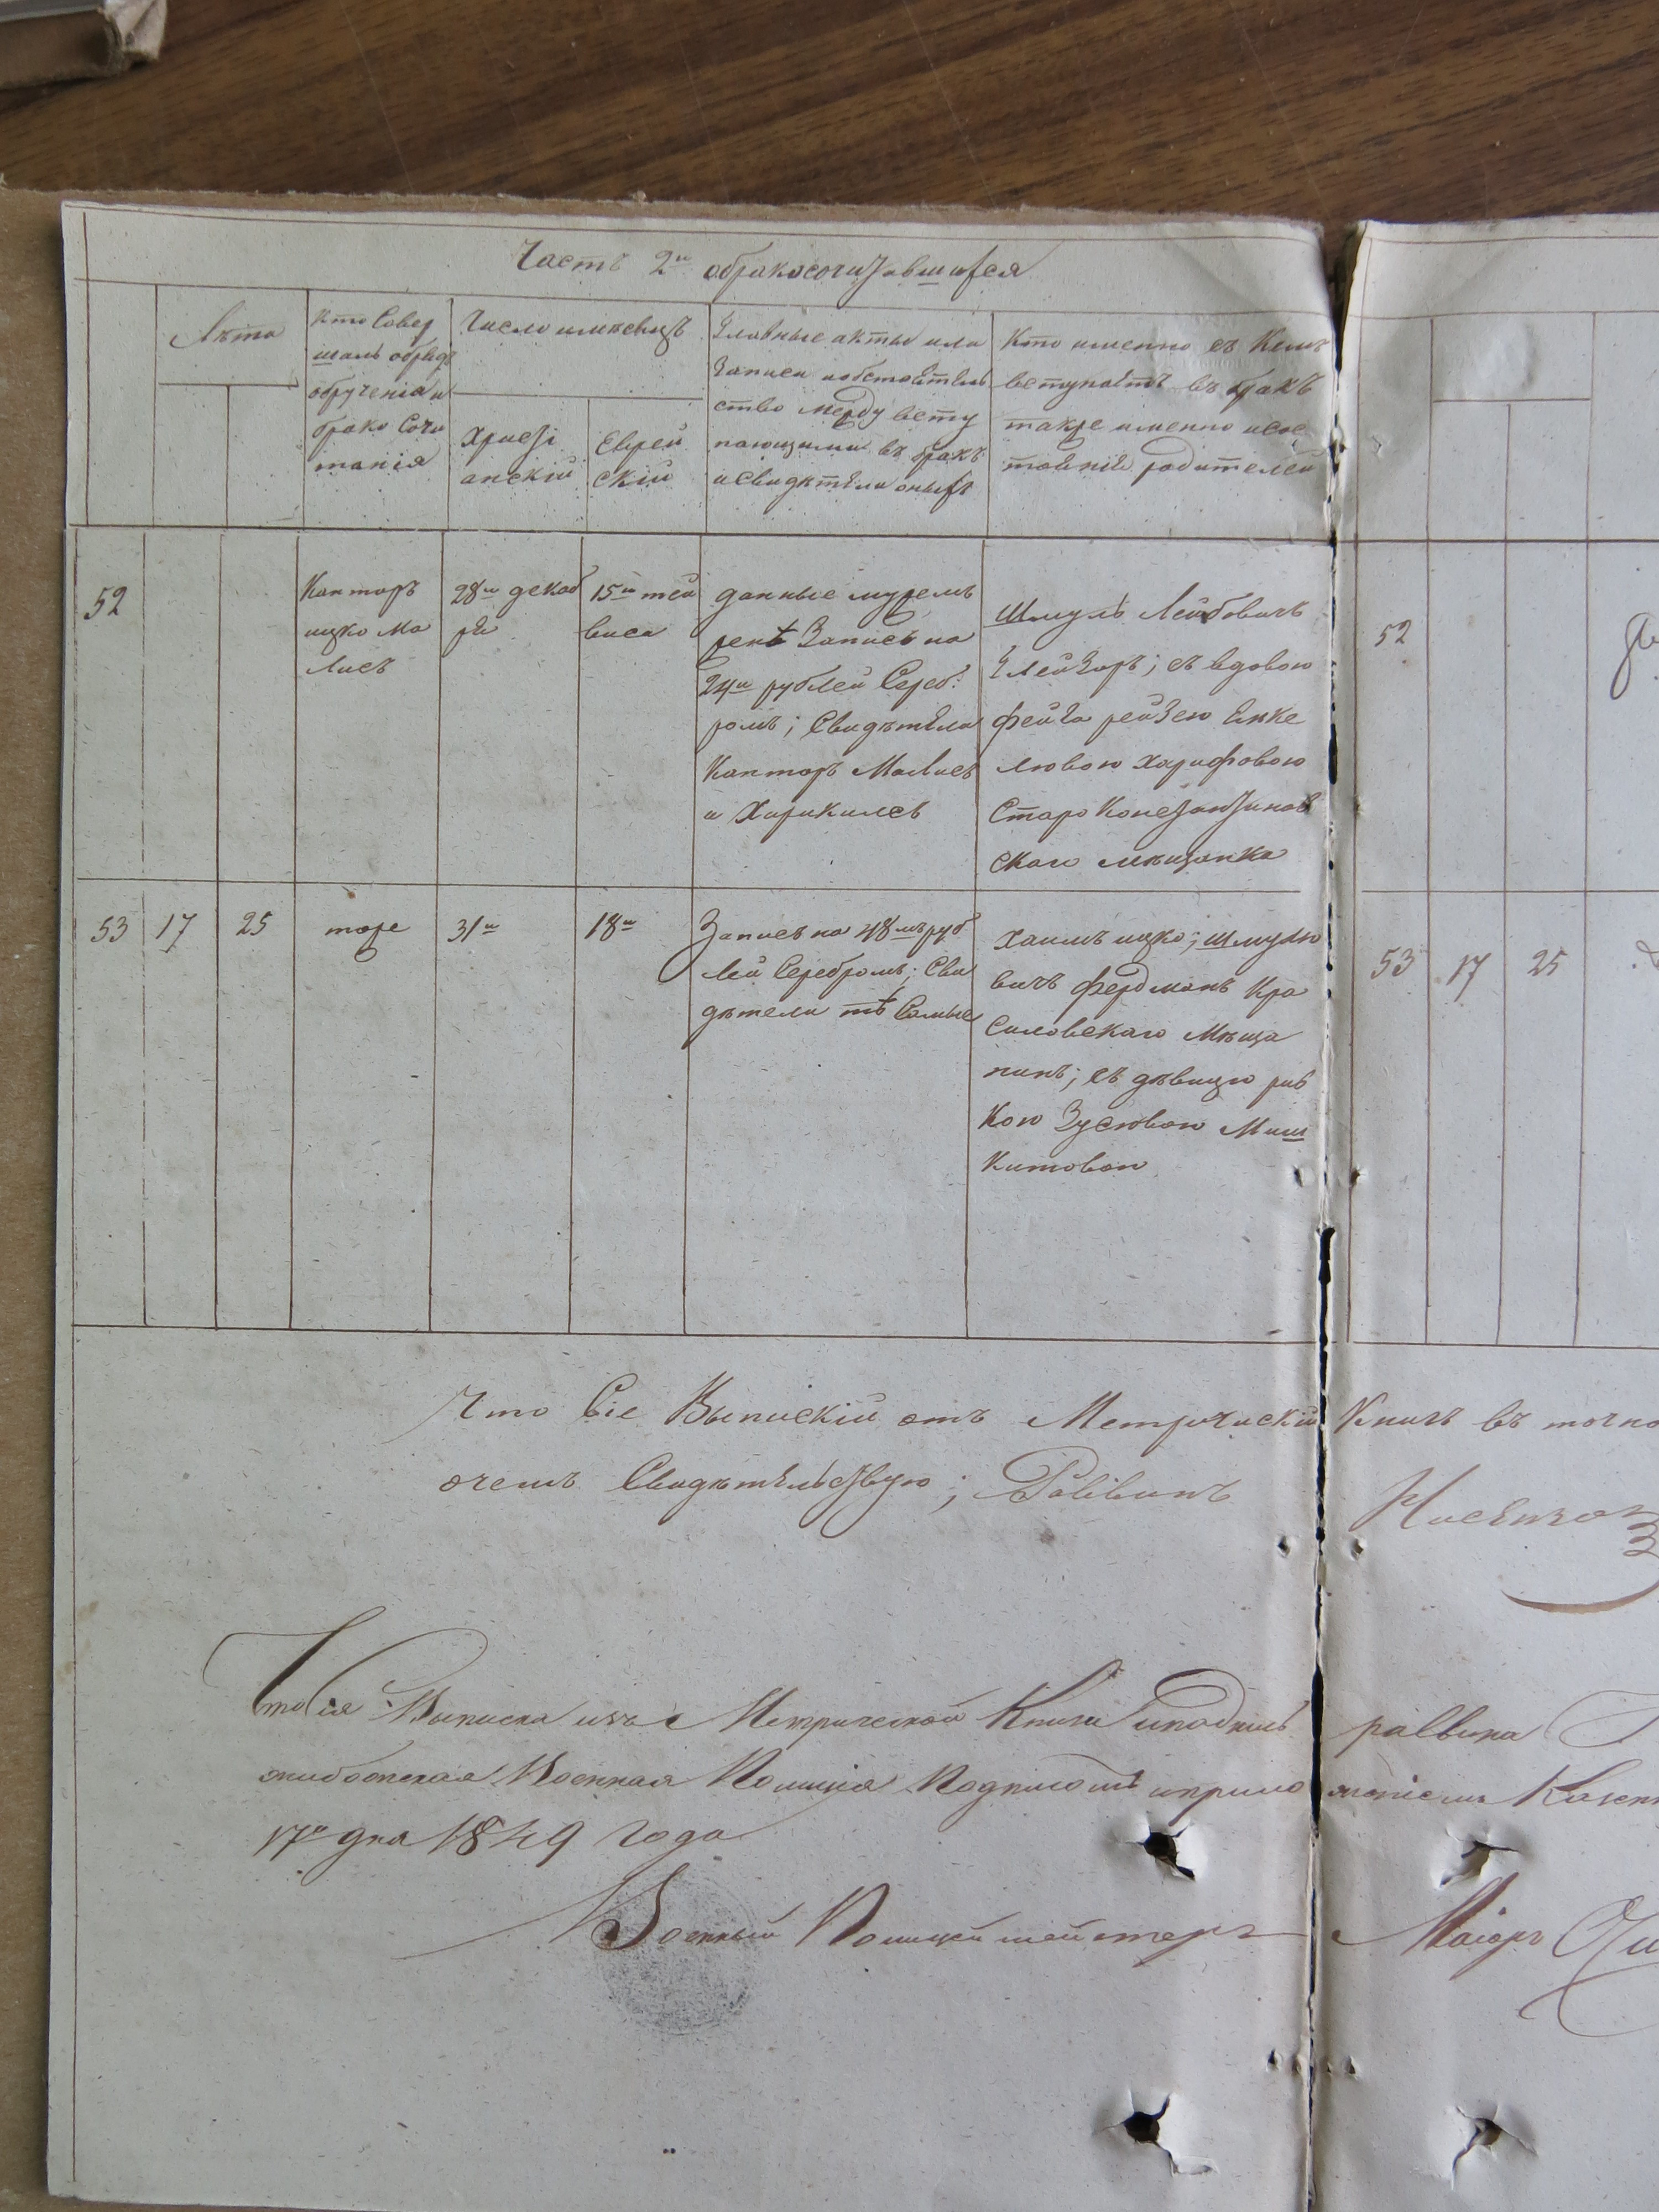 Часть 2я обракосочитавшихся
Лѣта
Кто Совер
шалъ обрядъ
обрученія и
брако Сочи
танія
Число имѣсяцъ
Христі
анскій
Еврей
скій
Главные акты или
Записи иобстоятель
ство между всту
пающими въ бракъ
исвидѣтели оныхъ
Кто именно съ Кемъ
вступаетъ въ бракъ
также именно исос
тояніе родителей
52
Канторъ
ицко Ма
лисъ
28го декаб
ря
15го тей
виса
данные мужемъ
женѣ Запись на
24ри рублей Сереб:
ромъ; Свидѣтели
Канторъ Малисъ
и
Шмуль Лейбовичъ
Глейзеръ; съ вдовою
фейга рейзею Янке
лювою Харифовою
Старо Константинов
скаго мѣщанка
52
53
17
25
тоже
31го
18го
Запись на 48мь руб
лей Серебромъ; Сви
дѣтели тѣ Самые
Хаимъ ицко; шмулю
вичъ фердманъ Кра
силовскаго Мѣща
нинъ; съ дѣвицю рив
кою Зусювою Миш
китовою
53
17
25
Что Сіе Выпискій отъ Метрическій Книгъ въ точно
очемъ Свидѣтельствую; Раввинъ
Что Сія Выписка изъ Метрической Книги раввина
жибожская Военная Полиція Подписомъ иприло женіемъ Казенн
17го дня 1849 года
Военный Полицеймейстеръ Маіоръ